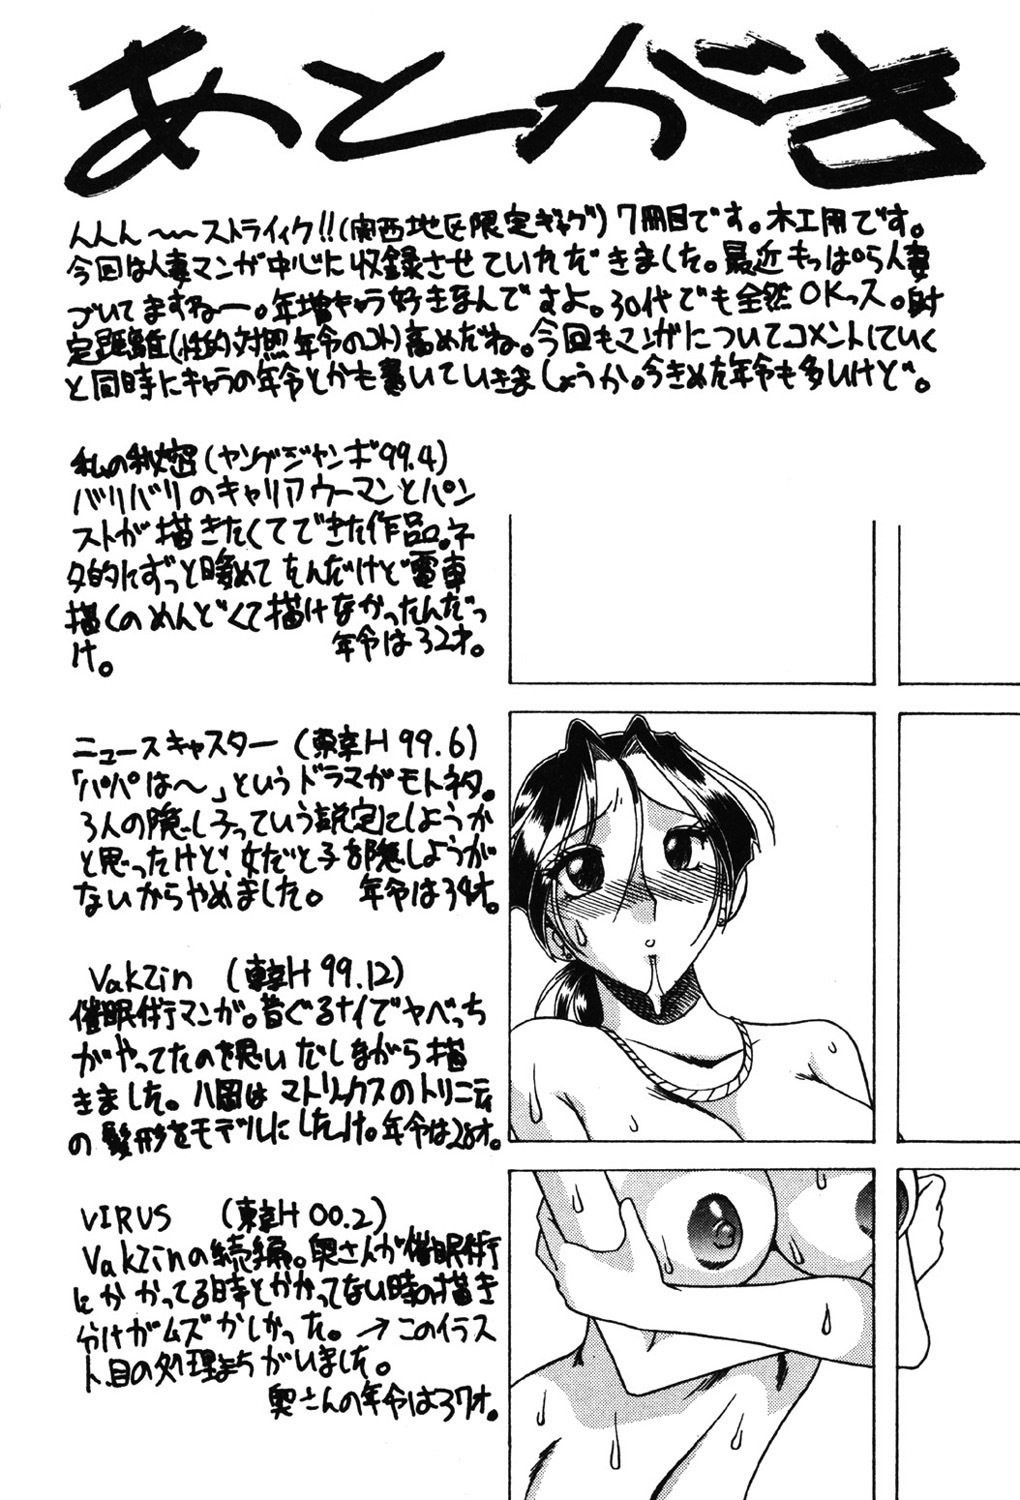 あとがき
んんん〜〜ストライィク!!(関西地区限定ギャグ)7冊目です。木工用です。
今回は人妻マンガ中心に収録させていただきました。最近もっぱら人妻
づいてますねー。年増キャラ好きなんですよ。30代でも全然OKっス。射
定距離(性的対照年令のコト)高めだね。今回もマンガについてコメントしていく
と同時にキャラの年令とかも書いていきましょうか。今きめた年令も多いけど。
私の秘密(ヤングジャンボ'99.4)
バリバリのキャリアウーマンとパン
ストが描きたくてできた作品。ネ
タ的にずっと暖めてたんだけど電車
描くのめんどくて描けなかったんだっ
け。 年令は32才。
ニュースキャスター(東京H 99.6)
「パパは〜」というドラマがモトネタ。
3人の隠し子っていう設定にしようか
と思ったけど、女だと子を隠しようが
ないからやめました。 年令は34才。
VakZin (東京H 99.12)
催眠術マンガ。昔ぐるナイでヤベっち
がやってたのを思いだしながら描
きました。八岡はマトリックスのトリニティ
の髪形をモデルにしたっけ。年令は28才。
VIRUS (東京H 00.2)
VakZinの続編。奥さんが催眠術
にかかってる時とかかってない時の描き
分けがムズかしかった。→このイラス
ト、目の処理まちがいました。
奥さんの年令は37才。